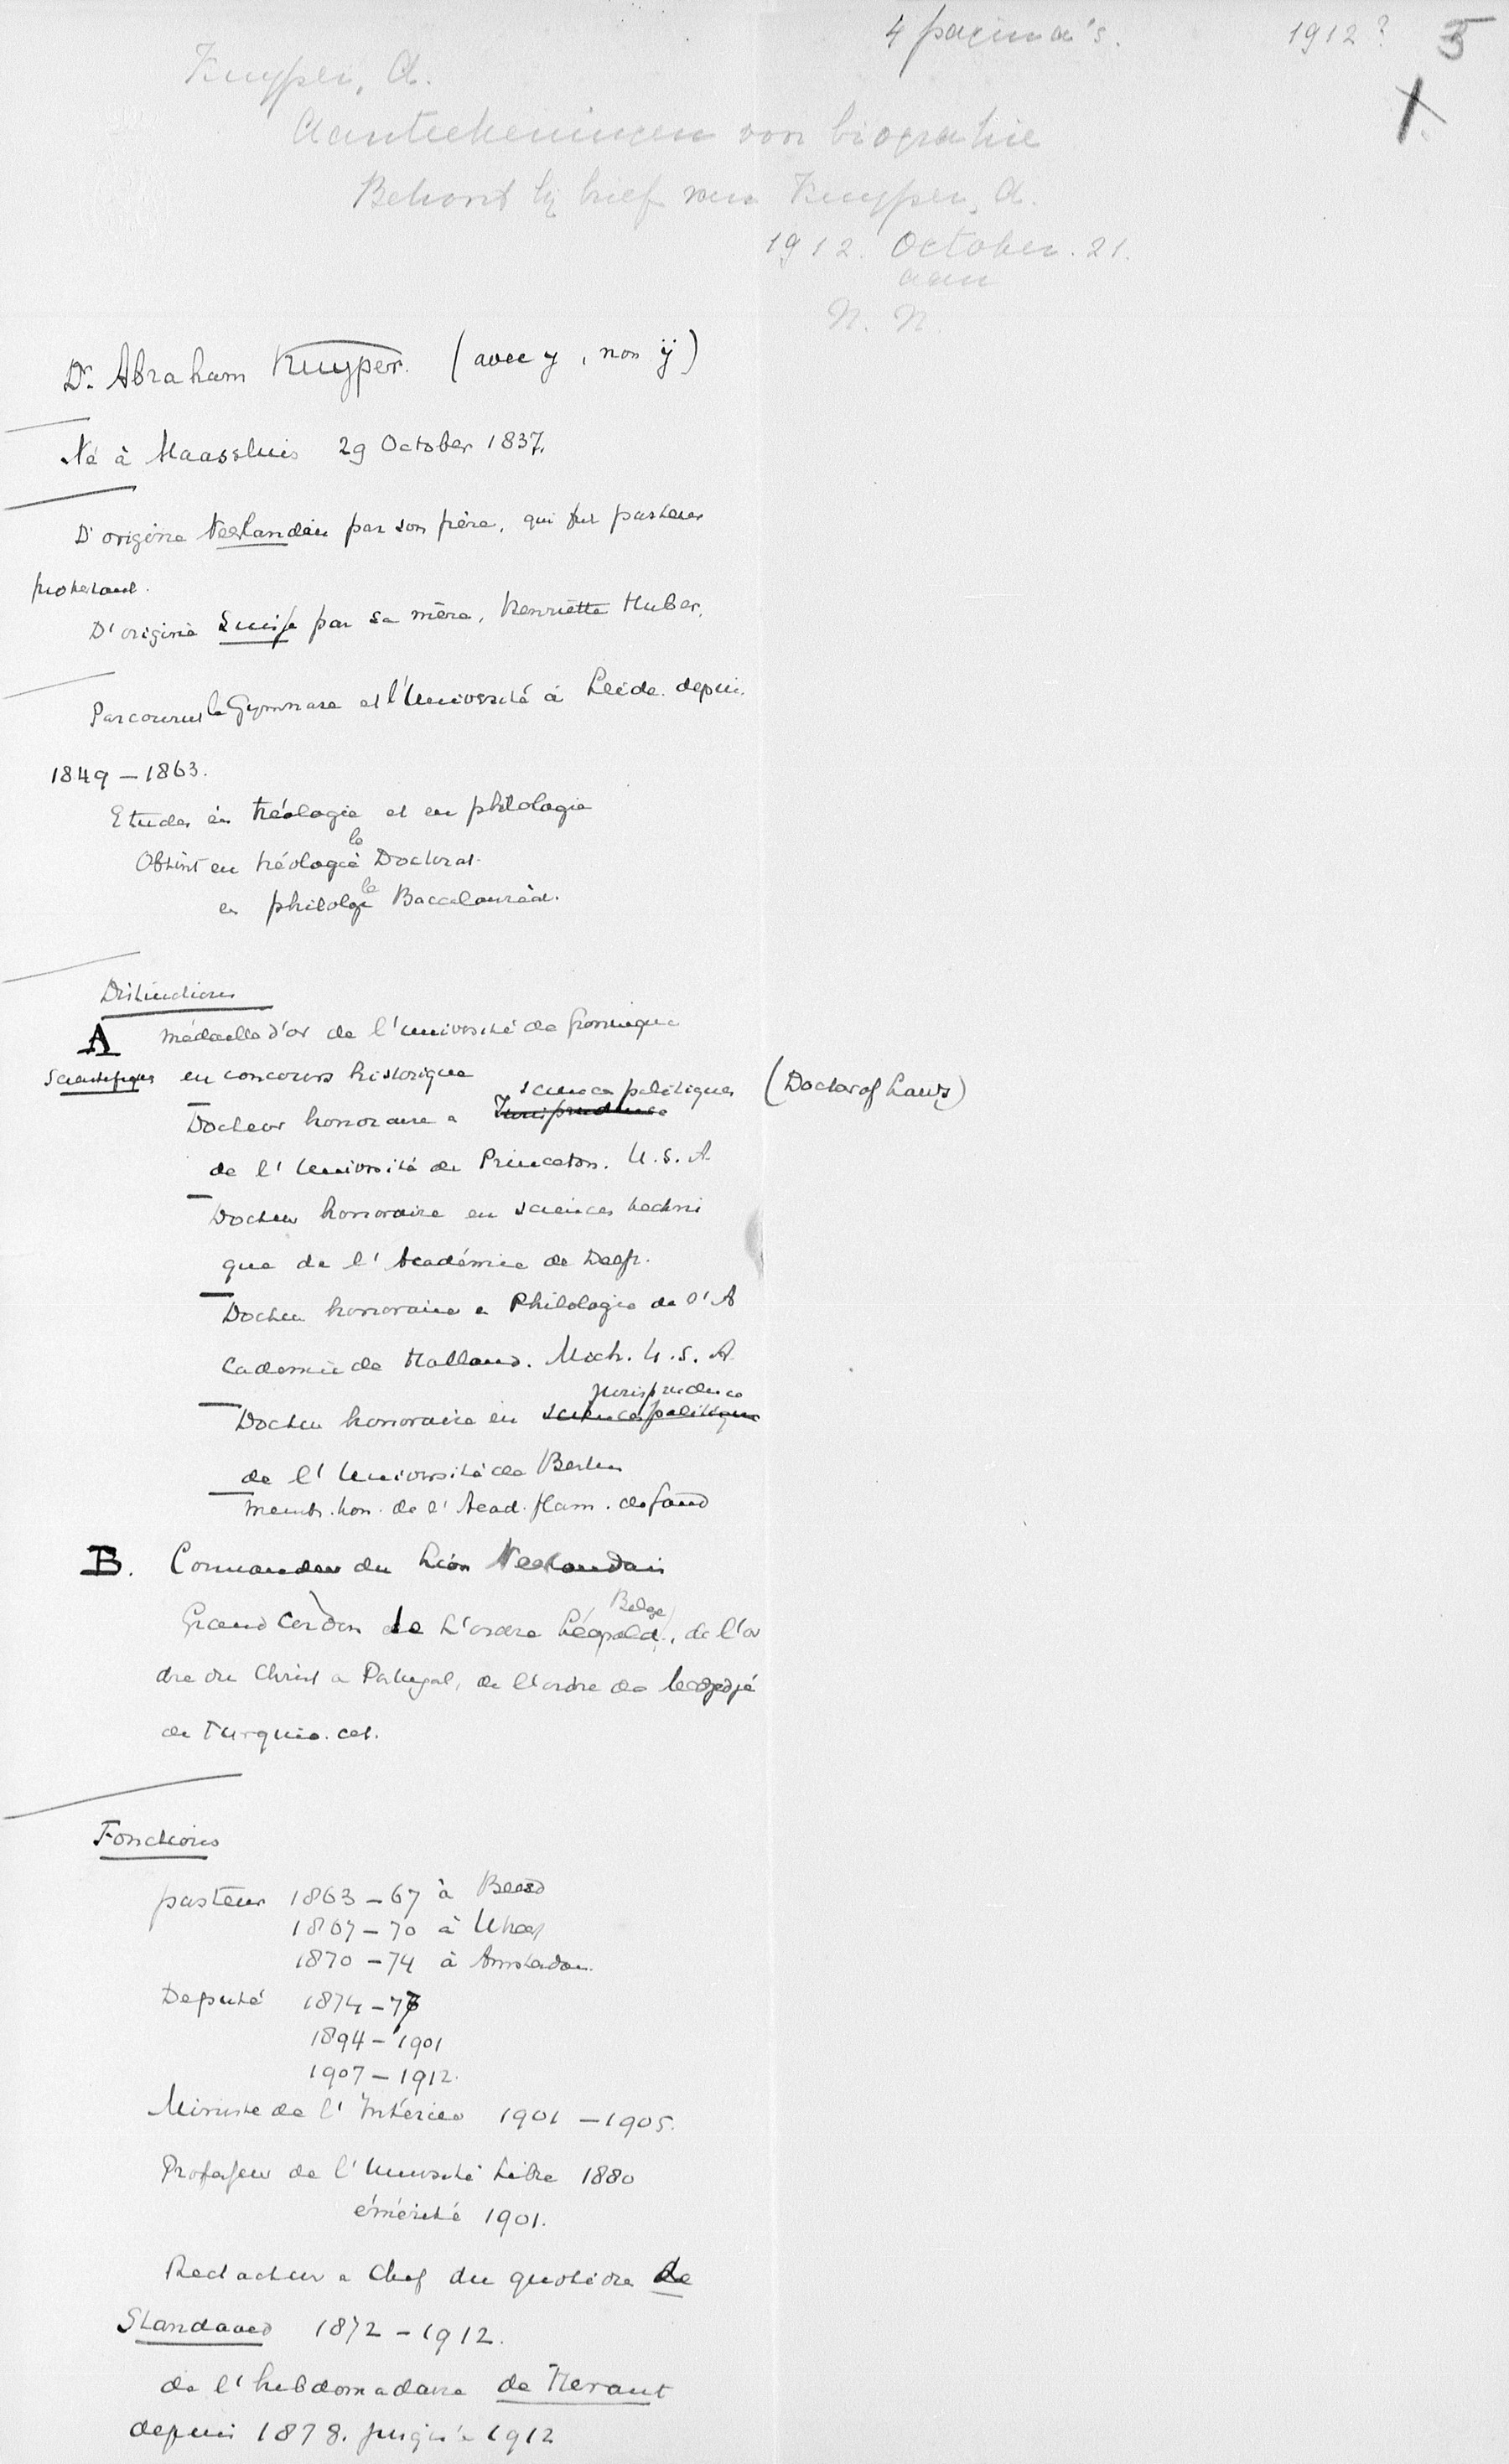 4 pagina's. 1912? 5
Kuyper, A.
1.
Aantekeningen voor biografie
Behoort bij brief van Kuyper, A.
1912. October. 21.
aan
N. N.
Dr. Abraham Kuyper. (avec y, non ij)
Né à Maassluis 29 October 1837.
D'origine Neerlandais par son père, qui fut pasteur
protestant.
D'origine Suisse par sa mère, Henriëtte Huber.
Parcourut le Gymnase et l'Université à Leide depuis
1849 – 1863.
Etudes én théologie et en philologie
Obtint en théologie le Doctorat.
en philologie le Baccalauréat.
Distinctions
A médaille d'or de l'Université de Groningue
Scientifiques en concours historique
Docteur honoraire en Jurisprudence sciences politiques (Doctor of Laws)
de l'Université de Princeton. U.S.A.
Docteur honoraire en sciences techni
que de l'Académie de Delft.
Docteur honoraire en Philologie de l'A
cademie de Holland. Mich. U.S.A.
Docteur honoraire en sciences politiques jurisprudence
de l'Université de Berlin
Membr. hon. de l'Acad. flam. de Gand
B. Commandeur du Lion Neerlandais
Grand Cordon de L'ordre Léopold Belge, de l'or
dre du Christ en Portugal, de l'ordre de Medjidjé
de Turquie. cet.
Fonctions
pasteur 1863 – 67 à Beesd
1867 – 70 à Utrecht
1870 – 74 à Amsterdam.
Deputé 1874 – 77
1894 – 1901
1907 – 1912.
Ministre de l'Intérieur 1901 – 1905.
Professeur de l'Université Libre 1880
émérité 1901.
Redacteur en Chef du quotidien de
Standaard 1872 – 1912.
de l'hebdomadaire de Heraut
depuis 1878. jusqu'à 1912